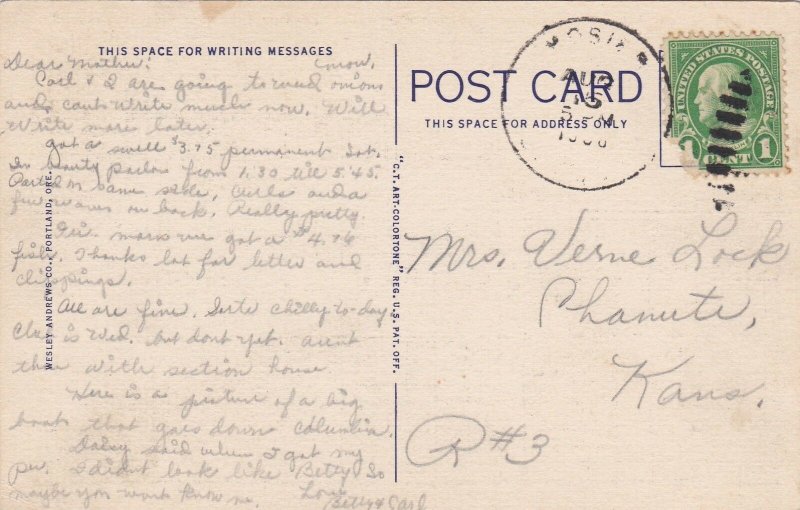 THIS SPACE FOR WRITING MESSAGES
Dear Mother: (mon.
Carl & I are going to weed onions
and cant write much now. Will
write more later.
Got a swell $3.75 permanent Sat.
In beauty parlor from 1:30 till 5:45.
Parted on same side, curls and a
few waves on back. Really pretty.
got a $4.76
Thanks lot for letter and
clippings.
All are fine. Sorta chilly to-day.
is Wed. but dont yet. arent
thru with section house.
Here is a picture of a big
boat that goes down Columbia.
Daisy said when I got my
per. I didnt look like Betty. So
maybe you wont know me. Love
Betty & Carl
WESLEY ANDREWS CO., PORTLAND, ORE.
"C.T. ART-COLORTONE" REG. U.S. PAT. OFF.
POST CARD
THIS SPACE FOR ADDRESS ONLY
MOSIER
AUG
15
UNITED STATES POSTAGE
CENT 1
Mrs. Verne Lock
Chanute,
Kans.
R#3